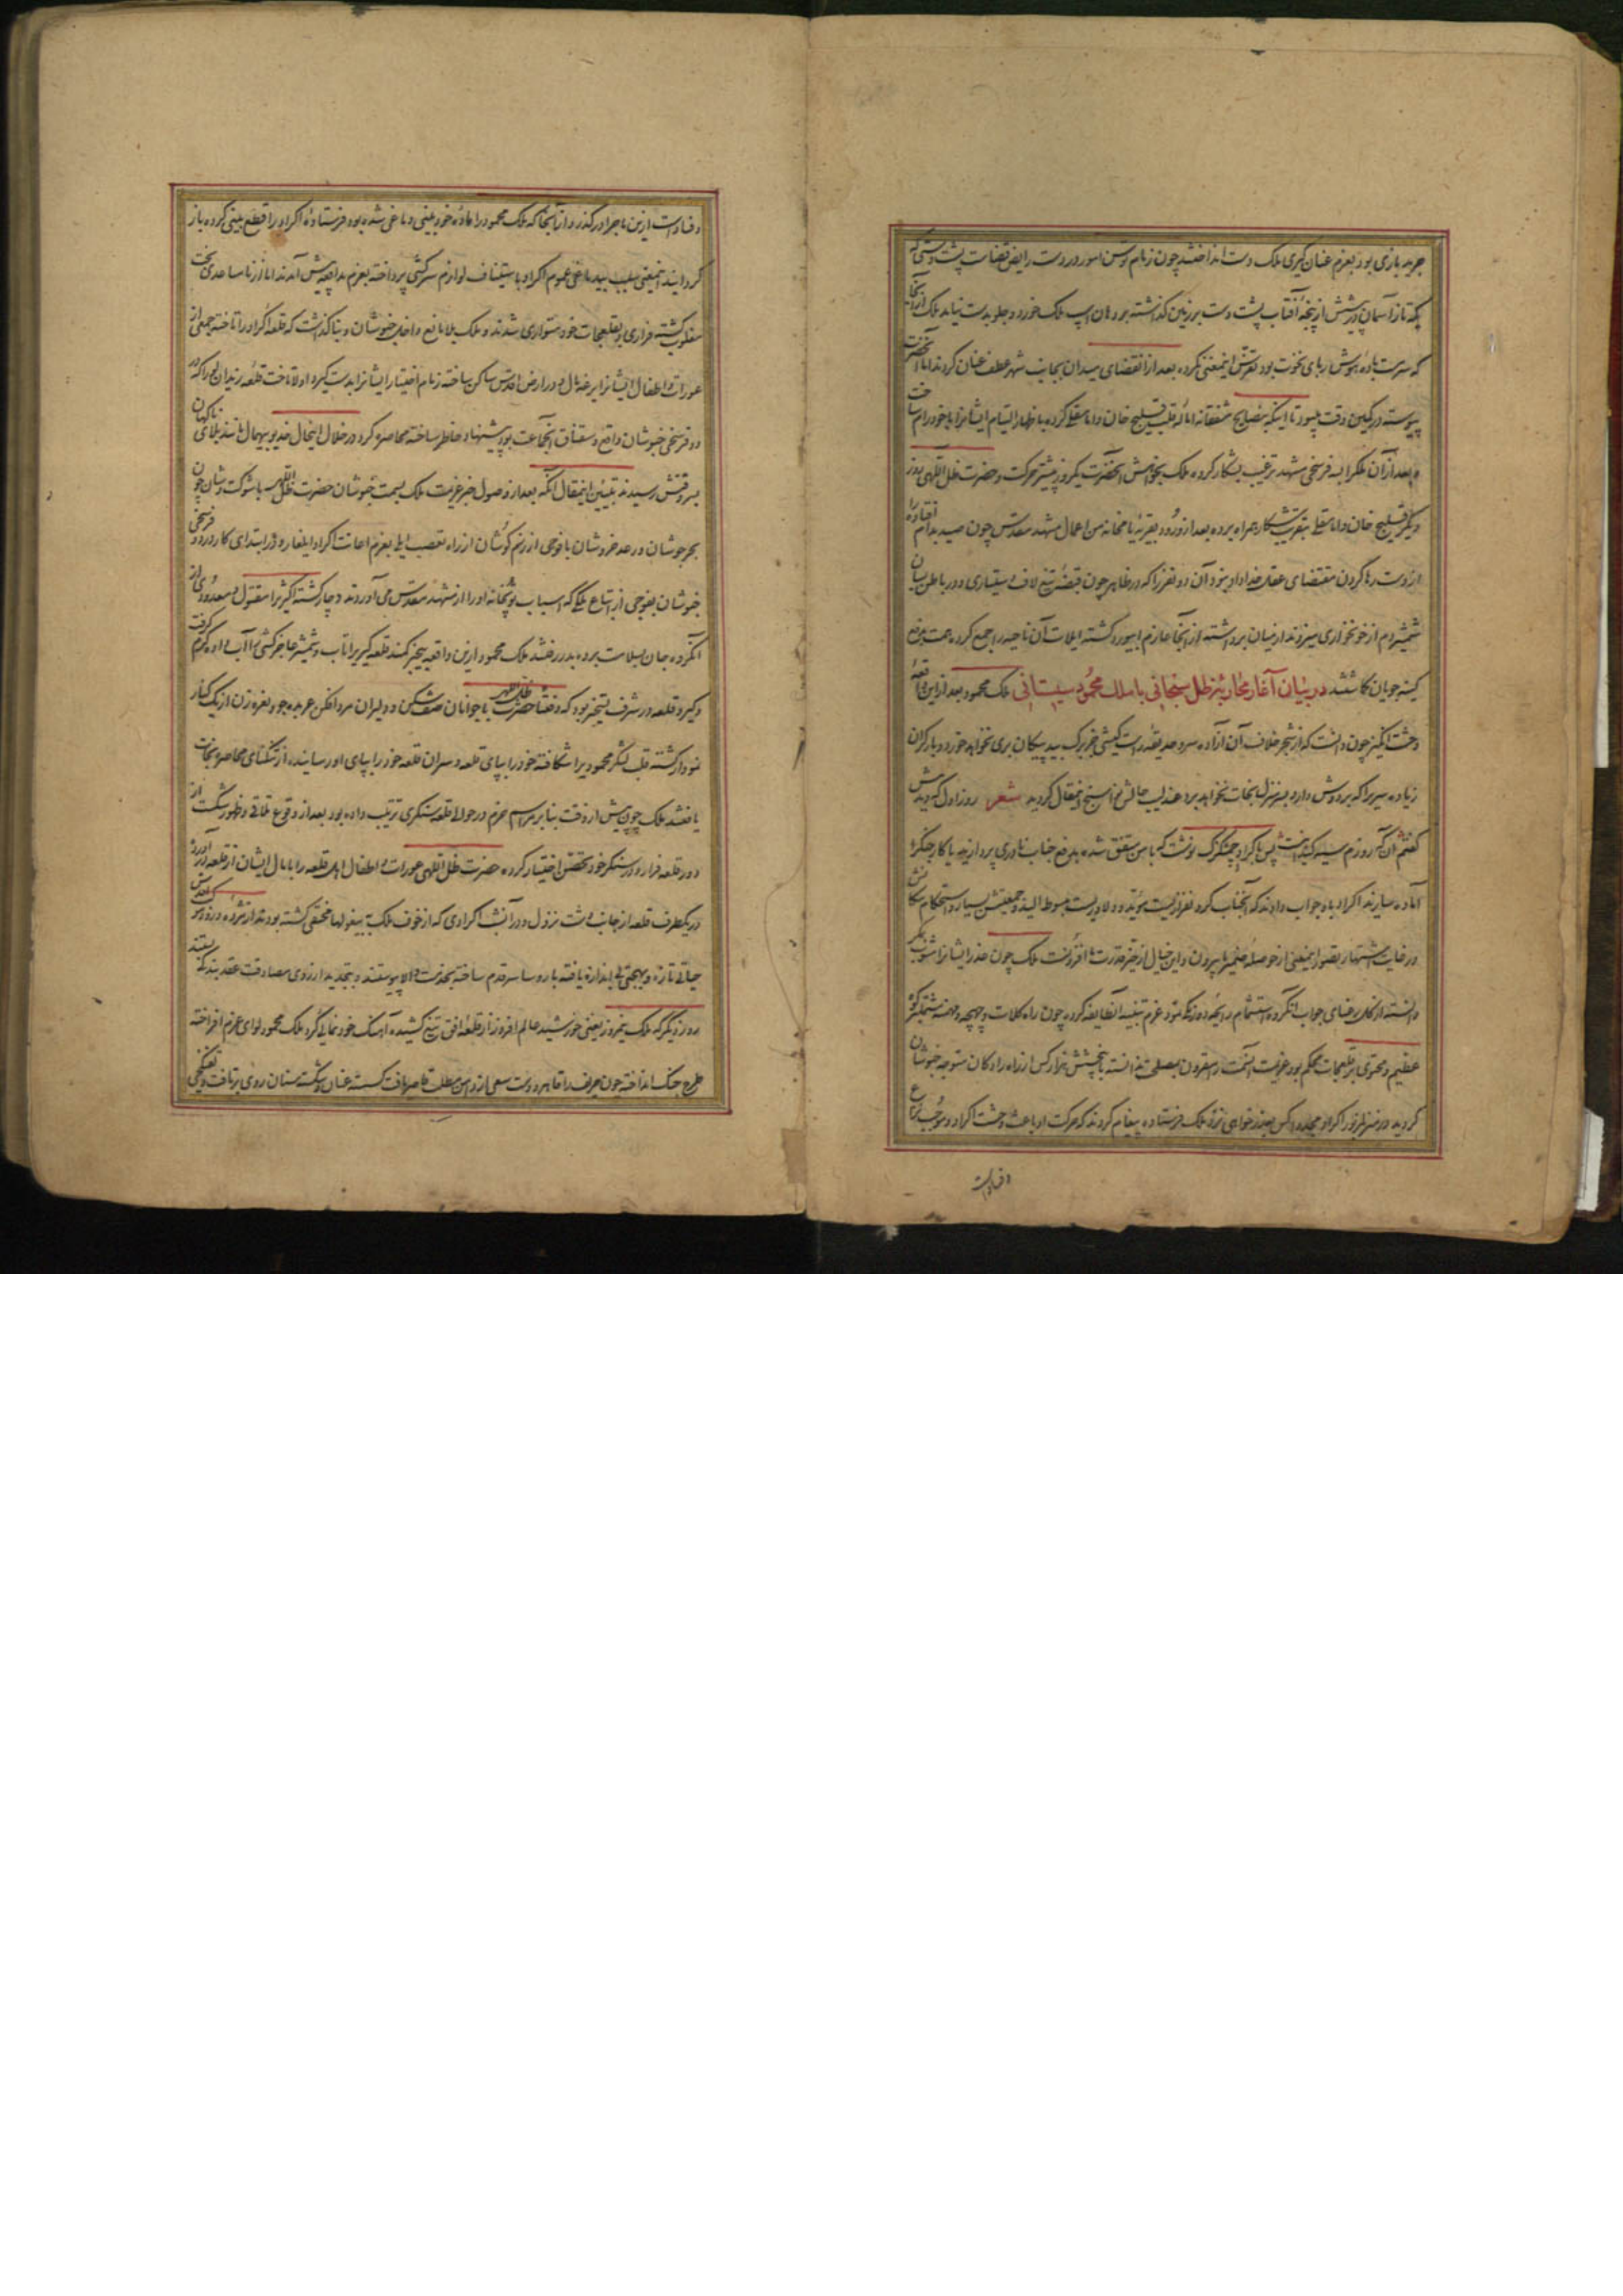 جرید بازی بود بعزم عنان گیری ملک دست انداختند چون زمام توسن امور در دست رایض قضاست پشت دستی که
یکه تاز آسمان در شش از پنجه آفتاب پشت دست بر زمین گذاشته بر دهان اسپ ملک خورد و جلو بدست نیامد ملک از آنجا
که سرمست باده هوش ربای نخوت بود تعرض اینمعنی نکرده بعد از انقضای میدان بجانب شهر عطف عنان کردند اما آنحضرت
پیوسته در کمین وقت میبود تا اینکه بنصایح مشفقانه اماله قلب قلیج خان و امامقلی کرده باظهار التیام ایشانرا با خود رام ساخت
و بعد از آن ملکرا بسه فرسخی مشهد ترغیب بشکار کرده ملک بخواهش آنحضرت یکروز پیشتر حرکت و حضرت ظل اللهی روز
دیگر قلیج خان و امامقلی بتقریب شکار همراه برده بعد از ورود بقریه من اعمال مشهد مقدس چون صید بدام افتاده را
از دست رها کردن مقتضای عقل خداداد نبود آن دو نفر را که در ظاهر چون قبضه تیغ لاف دستیاری و در باطن بسان
شمشیر دم از خونخواری میزدند از میان برداشته از آنجا عازم ابیورد گشته ایلات آن ناحیه را جمع کرده همت بدفع
کینه جویان گماشتند در بیان آغاز محاربه ظل سبحانی با ملک محمود سیستانی ملک محمود بعد از این واقعه
وحشت انگیز چون دانست که از شجر خلاف آن آزاده سرو حدیقه راست کیشی جز برک بید پیکان بری نخواهد خورد و بار گران
زیاده سریرا که بر دوش دارد بسر منزل نجات نخواهد برد عندلیب حالش نواسنج اینمقال گردید شعر روز اول که دیدمش
گفتم آن که روزم سیه کند اینست پس با کراد چمشگزک نوشت که با من متفق شده بدفع جناب نادری پردازند یا کار جنگ را
آماده سازند اکراد باو جواب دادند که آنجناب کرده نفرازیست مؤید و دلاوریست مبسوط الید و جمعیتش بسیار و استحکام مکانش
در غایت اشتهار تصور اینمعنی از حوصله ضمیر ما بیرون و این خیال از حیز قدرت ما افزونست ملک چون عذر ایشانرا مشوب بمکر
دانسته از گل رعنای جواب آنگروه استشمام رایحه دورنگی نمود عزم تنبیه آنطایفه کرده چون راه کلات و چهچهه و مهنه مشتمل بر کوه
عظیم و محتوی بر قلعجات محکم بود عزیمت آنسمت را مقرون بمصلحت ندانسته با پنج شش هزار کس از راه رادکان متوجه خبوشان
گردید در منزل مزبور اکراد مجددا کس بعذر خواهی نزد ملک فرستاده پیغام کردند که حرکت او باعث وحشت اکراد و موجب نزاع
و فساد است
و فساد است ازین ماجرا در گذرد و از آنجا که ملک محمود را ماده خود بینی دماغی شده بود فرستاده اکراد را قطع بینی کرده باز
گردانید اینمعنی سبب بیدماغی عموم اکراد باستیناف لوازم سرکشی پرداخته بعزم مدافعه پیش آمدند اما از نامساعدی بخت
مغلوب گشته فراری و بقلعجات خود متواری شدند و ملک بلا مانع داخل خبوشان و بنا گذاشت که قلعه اکراد را تاخته جمعی از
عورات و اطفال ایشانرا یرغمال و در ارض اقدس ساکن ساخته زمام اختیار ایشانرا بدست گیرد اولا تاخت قلعه زیدانلو را که در
دو فرسخی خبوشان واقع و سقناق آنجماعت بود پیشنهاد خاطر ساخته محاصره کرد در خلال اینحال خدیو بیهمال مانند بلای ناگهان
بسر وقتش رسیدند تبیین اینمقال آنکه بعد از وصول خبر عزیمت ملک بسمت خبوشان حضرت ظل اللهی با شوکت و شان چون
بحر جوشان و رعد خروشان با فوجی از رزم کوشان از راه تعصب ایلی بعزم اعانت اکراد ایلغار و در ابتدای کار در دو فرسخی
خبوشان بفوجی از اتباع ملک که اسباب توپخانه او را از مشهد مقدس می آوردند دچار گشته اکثیرا مقتول و معدودی از
آنگروه جان بسلامت برده بدر رفتند ملک محمود ازین واقعه بیخبر کمند قلعه گیریرا تاب و شمشیر عاجز کشی را آب داده گرم گرفت
و گیر و قلعه در شرف تسخیر بود که دفعتا حضرت ظل اللهی با جوانان صف شکن و دلیران مرد افکن عربده جو و نعره زن از یک کنار
نمودار گشته قلب لشکر محمودیرا شکافته خود را بپای قلعه و سران قلعه خود را بپای او رسانیده از تنگنای محاصره نجات
یافتند ملک چون پیش از وقت بنا بر مراسم حزم در حوالی قلعه سنگری ترتیب داده بود بعد از وقوع تلاقی و ظهور شکست از
دور قلعه فرار و در سنگر خود تحصن اختیار کرده حضرت ظل اللهی عورات و اطفال اهل قلعه را با مال ایشان از قلعه در آورده
در یکطرف قلعه از جانب دشت نزول و در آنشب اکرادی که از خوف ملک ببیغولها مختفی گشته بودند از مژده ورود موکب اقدس
حیاتی تازه و بهجتی بی اندازه یافته با رؤسا سر قدم ساخته بخدمت والا پیوستند و بتجدید از روی مصادقت عقد بندگی بستند
روز دیگر که ملک نیمروز یعنی خورشید عالم افروز از قلعه افق تیغ کشیده آهنگ خود نمائی کرد ملک محمود لوای عزم افراخته
طرح جنگ انداخته چون حریف را قاهر و دست سعی از دامن مطلب قاصر یافت گسسته عنان و شکسته سنان روی برتافت و تفنگچی